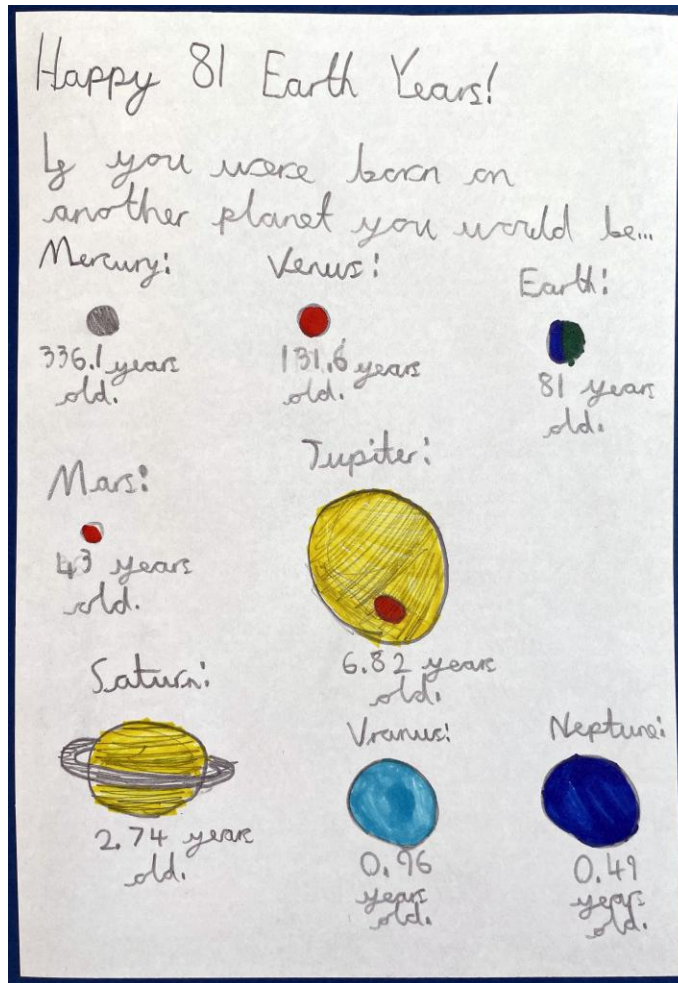 Happy 81 Earth Years!
If you were born on
another planet you would be...
Mercury:
336.1 years
old.
Venus:
131.6 years
old.
Earth:
81 years
old.
Mars:
43 years
old.
Jupiter:
6.82 years
old.
Saturn:
2.74 years
old.
Uranus:
0.96
years
old.
Neptune:
0.49
years
old.